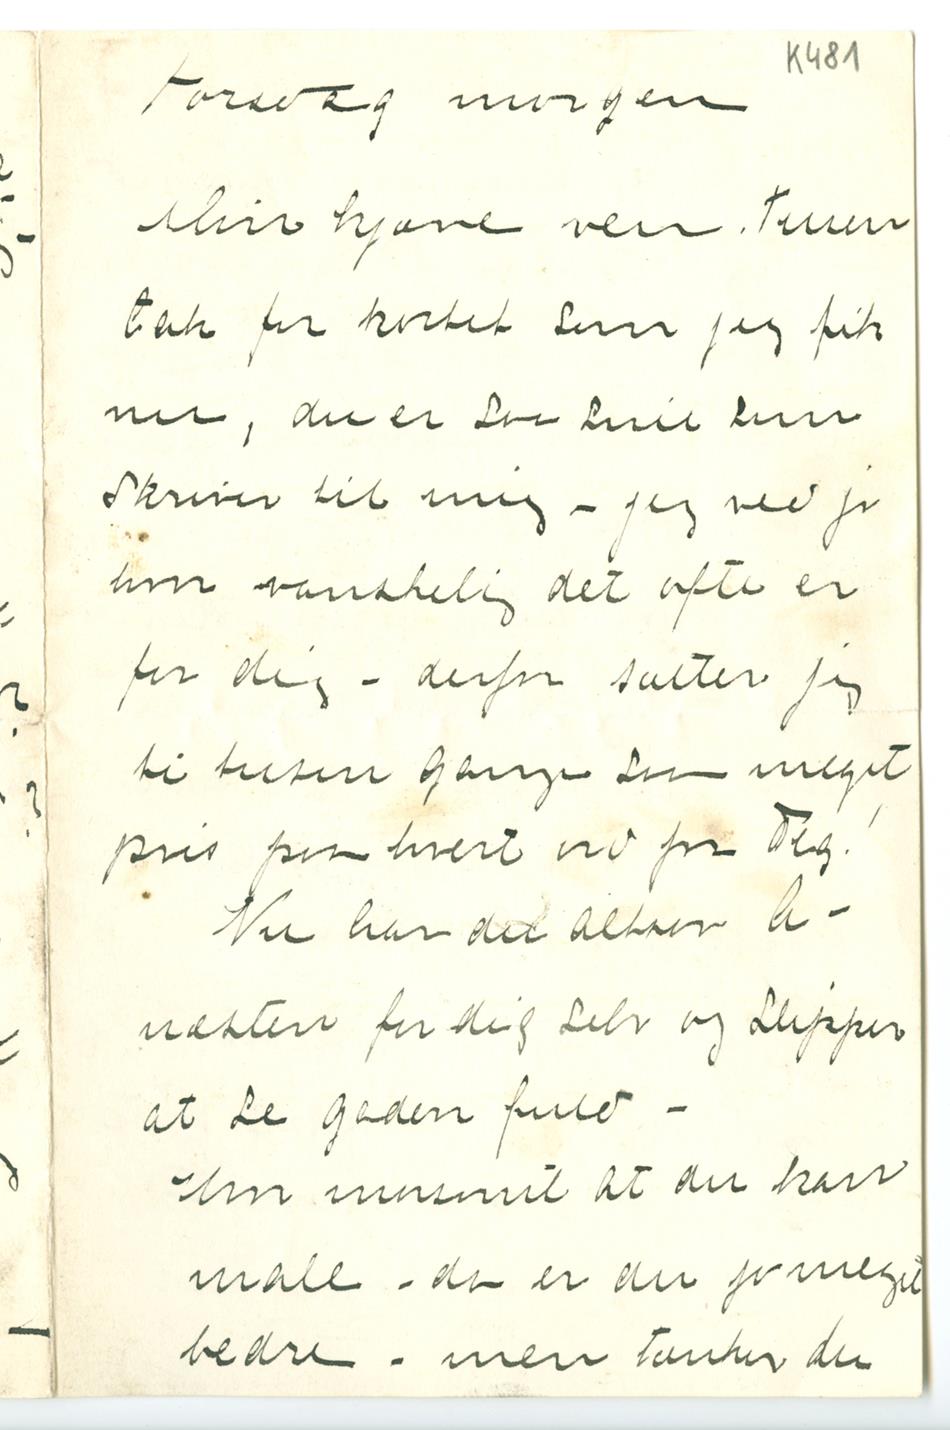 K481
Torsdag morgen
Min kjære ven. Tusen
tak for kortet som jeg fik
nu, du er saa snil som
skriver til mig – jeg ved jo
hvor vanskelig det ofte er
for dig – derfor sætter jeg
ti tusen gange saa meget
pris paa hvert ord fra Dig!
Nu har du altsaa
næsten for dig selv og slipper
at se gaden fuld –
Hvor morsomt at du kan
male – da er du jo meget
bedre – men tænker du